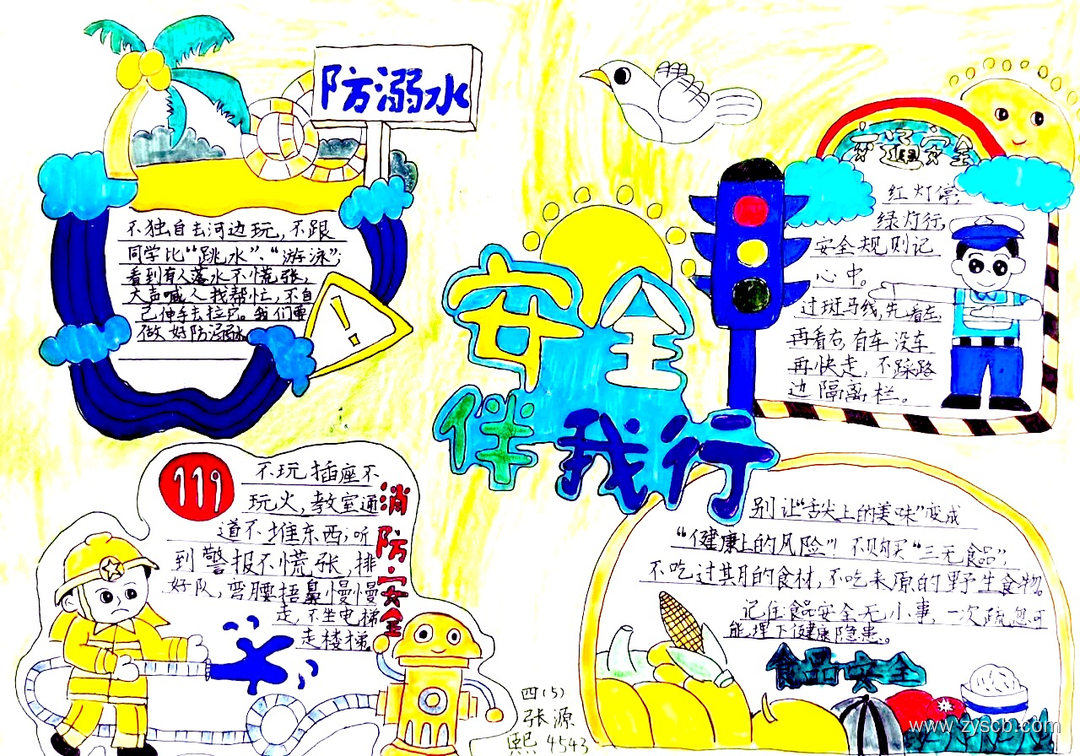 防溺水
不独自去河边玩，不跟
同学比“跳水”、“游泳”；
看到有人落水不慌张，
大声喊人找帮忙，不自
己伸手去拉它。我们要
做好防溺水
安全
伴我行
交通安全
红灯停，
绿灯行，
安全规则记
心中。
过斑马线，先看左，
再看右，有车没车
再快走，不踩路
边隔离栏。
119
消防安全
不玩插座不
玩火，教室通
道不堆东西，听
到警报不慌张，排
好队，弯腰捂鼻慢慢
走，不坐电梯
走楼梯
别让“舌尖上的美味”变成
“健康上的风险”！不购买“三无食品”，
不吃过其月的食材，不吃来原的野生食物。
记住食品安全无小事，一次疏忽可
能埋下健康隐患。
食品安全
四（5）
张源
熙 4543
www.zyscb.com